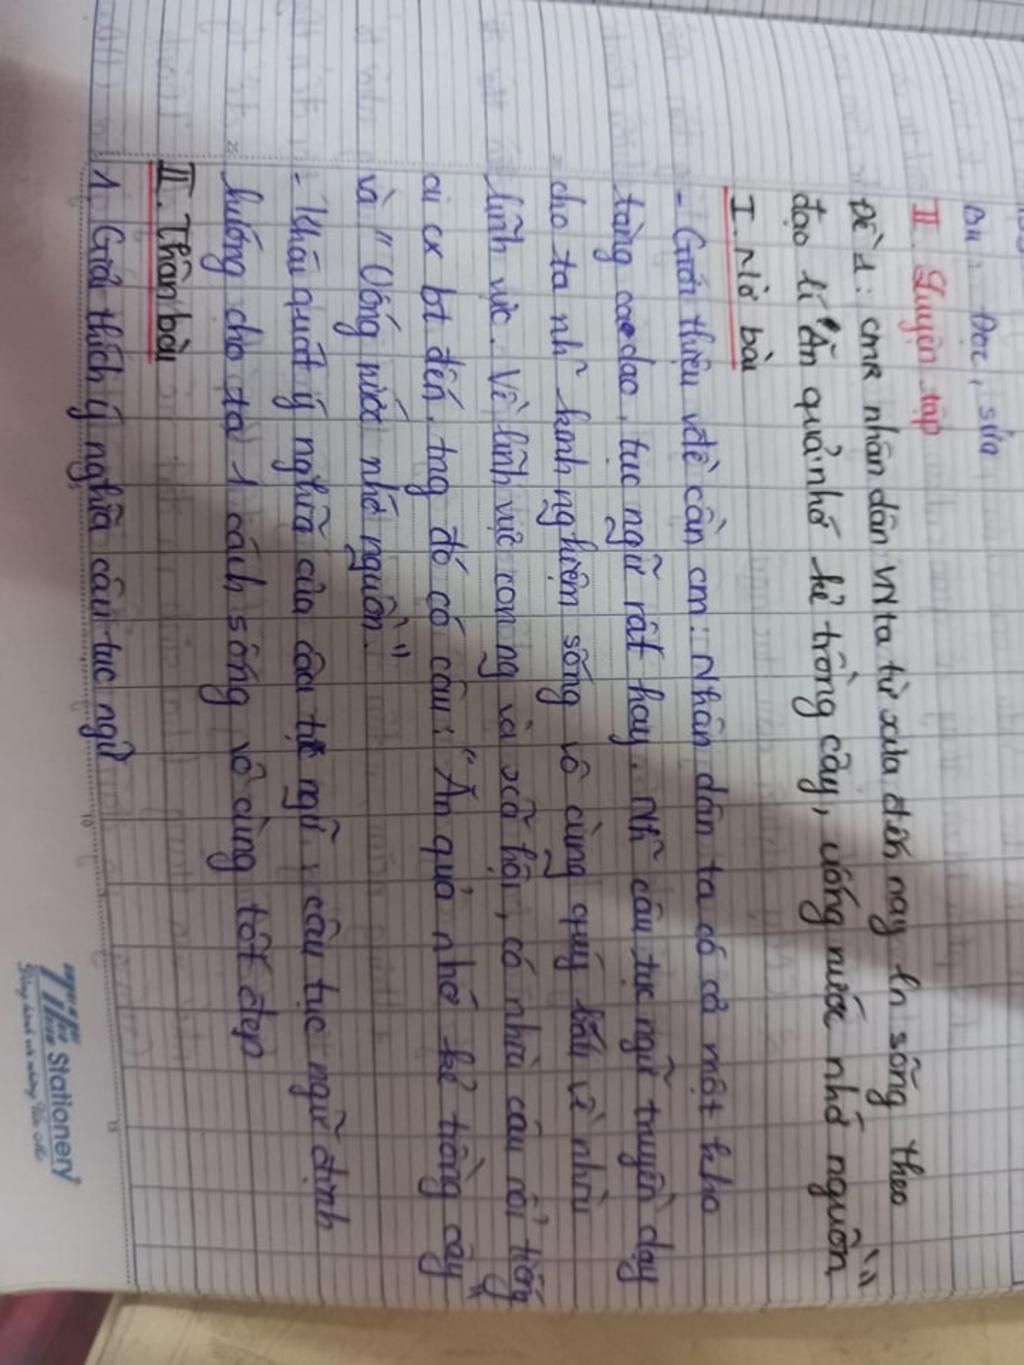 Đọc, sửa
II Luyện tập
Đề 1: CMR nhân dân VN ta từ xưa đến nay ln sống theo
đạo lí "Ăn quả nhớ kẻ trồng cây, uống nước nhớ nguồn"
I. Mở bài
- Giới thiệu vđề cần cm: Nhân dân ta có cả một kho
tàng ca dao, tục ngữ rất hay. Nh~ câu tục ngữ truyền dạy
cho ta nh~ kinh nghiệm sống vô cùng quý báu về nhiều
lĩnh vực. Về lĩnh vực con ng và xã hội, có nhiều câu nổi tiếng
ai cx bt đến, trg đó có câu: "Ăn quả nhớ kẻ trồng cây"
và "Uống nước nhớ nguồn"
- Khái quát ý nghĩa của câu tục ngữ: câu tục ngữ định
hướng cho ta 1 cách sống vô cùng tốt đẹp
II. Thân bài
1. Giải thích ý nghĩa câu tục ngữ
Stationery